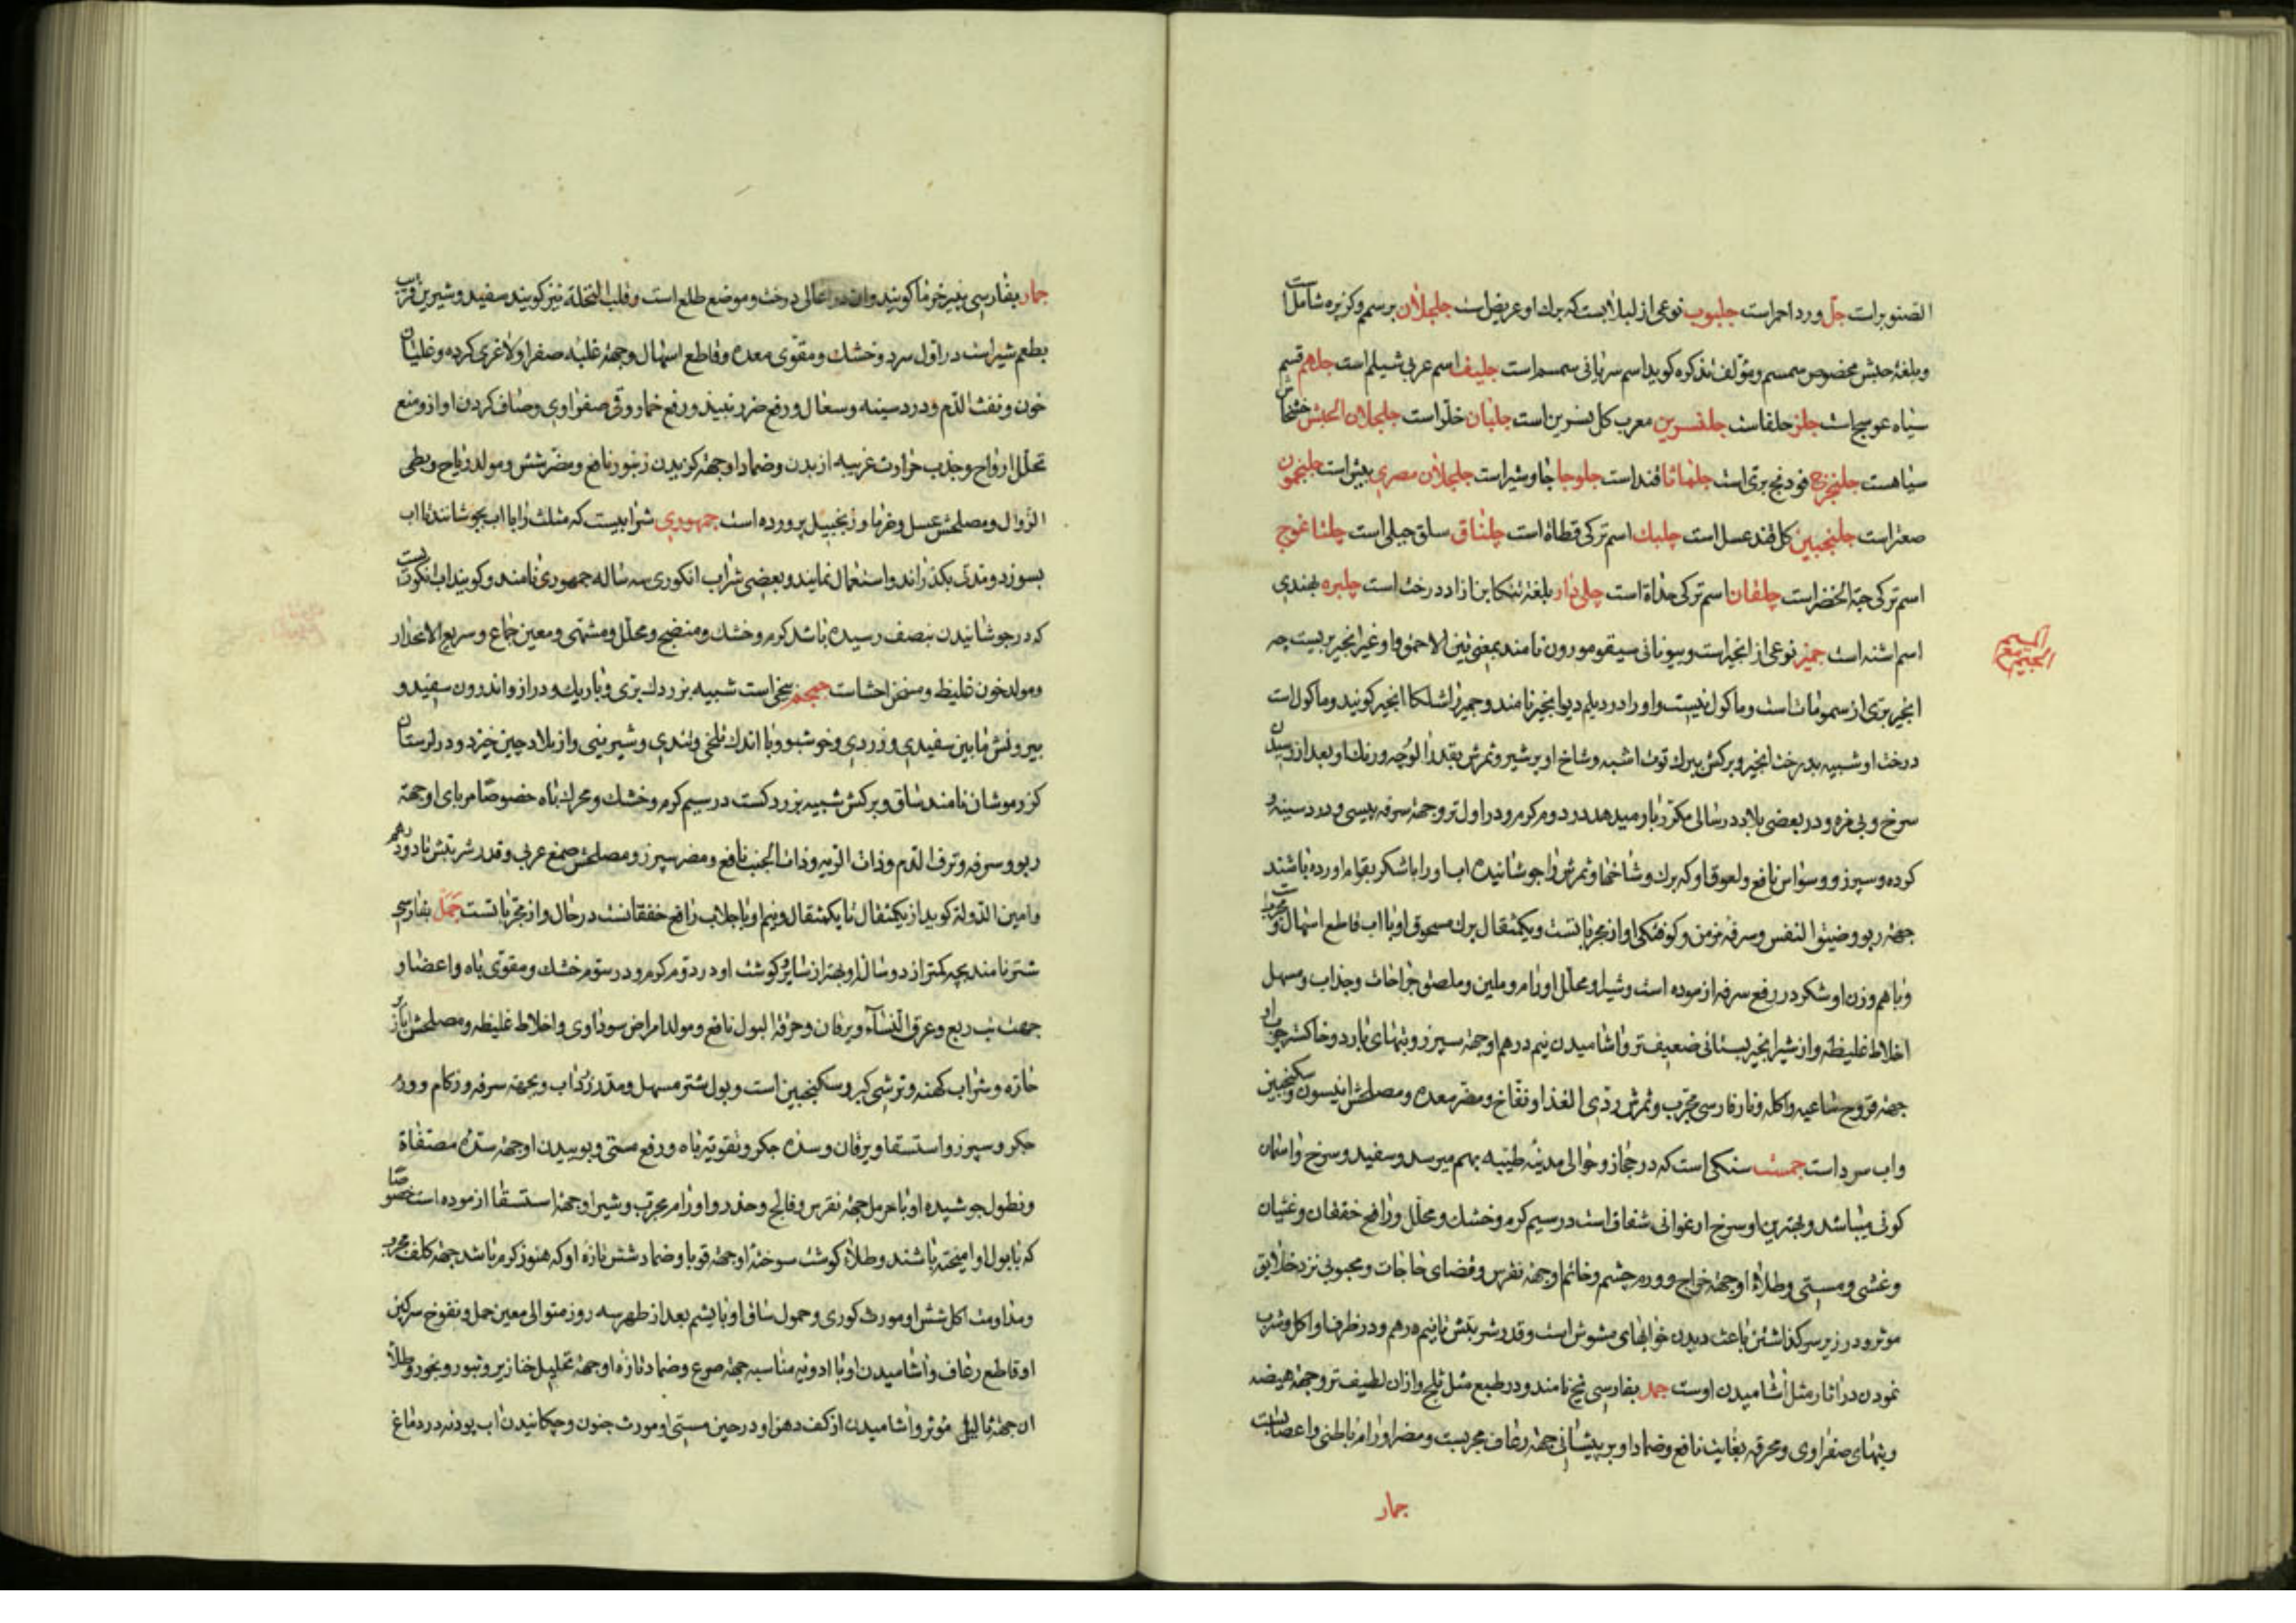 الصنوبر است جل ورد احمر است جلبوب نوعی از لبلابست که برك او عریض است جلجلان بر سمسم و کزبره شامل است
و بلغة حبش مخصوص سمسم و مؤلف تذکره کوید اسم سریانی سمسم است جلیف اسم عربی شیلم است جلهم قسم
سیاه عوسج است جلز حلفا است جلنسرین معرب کل نسرین است جلبان خلر است جلجلان الحبش خشخاش
سیاهست فودنج بری است قند است جلوجا جاوشیر است جلجلان مصری بیش است
صعتر است جلنجبین کل قند عسل است چلبك اسم ترکی قطاة است چلناق سلق جبلی است
اسم ترکی حبة الخضر است چلقان اسم ترکی است بلغة تنکابن ازاد درخت است چلبره بهندی
اسم اشنه است جمیز نوعی از انجیر است و بیونانی سیقومورون نامند بمعنی تین الاحمق و او غیر انجیر بریست چه
المیم مع الجیم
انجیر بری از سمومات است و ماکول نیست و او را در دیلم دیو انجیر نامند و جمیز را انجیر کویند و ماکول است
درخت او شبیه بدرخت انجیر و برکش ببرك توت اشبه و شاخ او پر شیر و ثمرش بقدر الوچه و رنك او بعد از رسیدن
سرخ و بی مزه و در بعضی بلاد در سالی مکرر بار میدهد در دوم کرم و در اول تر و جهة سرفه یبسی و درد سینه و
کرده و سپرز و وسواس نافع و لعوق او که برك و شاخها و ثمرش را جوشانیده اب او را با شکر بقوام اورده باشند
جهة ربو و ضیق النفس و سرفه مزمن و کوفتکی اواز مجربانست و یکمثقال برك مسحوق او با اب قاطع اسهال و مجربست
و با هم وزن او شکر در رفع سرفه ازموده است و شیر او محلل اورام و ملین و ملصق جراحات و جذاب و مسهل
اخلاط غلیظه و از شیر انجیر بستانی ضعیف تر و اشامیدن نیم درهم او جهة سپرز و تبهای بارد و خاکستر چوب او
جهة قروح ساعیه و اکله و نار فارسی مجرب و ثمرش ردی الغذا و نفاخ و مضر معده و مصلحش انیسون و سکنجبین
و اب سرد است جمست سنکی است که در حجاز و حوالی مدینة طیبه بهم میرسد و سفید و سرخ و اسمان
کونی میباشد و بهترین او سرخ ارغوانی شفاف است در سیم کرم و خشك و محلل و رافع خفقان و غثیان
و غشی و مستی و طلاء او جهة خراج و ورم چشم و خاتم او جهة نقرس و قضای حاجات و محبوبی نزد خلایق
موثر و در زیر سر کذاشتن باعث دیدن خوابهای مشوش است و قدر شربتش تا نیم درهم و در ظرف او اکل و شرب
نمودن در اثار مثل اشامیدن اوست جمد بفارسی یخ نامند و در طبع مثل ثلج و از ان لطیف تر و جهة هیضه
و تبهای صفراوی و محرقه بغایت نافع و ضماد او بر پیشانی جهة رعاف مجربست و مضر اورام باطنی و اعصابست
جمار
جمار بفارسی پنیر خرما کویند و ان در اعالی درخت و موضع طلع است و قلب النخلة نیز کویند سفید و شیرین قریب
بطعم شیر است در اول سرد و خشك و مقوی معده و قاطع اسهال و جهة غلبه صفرا و لاغری کرده و غلیان
خون و نفث الدم و درد سینه و سعال و رفع ضرر نبیذ و رفع خمار و قی صفراوی و صاف کردن اواز و منع
تحلل ارواح و جذب حرارت غریبه از بدن و ضماد او جهة کزیدن زنبور نافع و مضر شش و مولد ریاح و بطی
الزوال و مصلحش عسل و خرما و زنجبیل پرورده است جمهوری شرابیست که مثلث را با اب بجوشانند تا اب
بسوزد و مدتی بکذراند و استعمال نمایند و بعضی شراب انکوری سه ساله جمهوری نامند و کویند اب انکورست
که در جوشانیدن بنصف رسیده باشد کرم و خشك و منضج و محلل و مشهی و معین جماع و سریع الانحدار
و مولد خون غلیظ و مسخن احشاست جمجم بیخی است شبیه بزردك بری و باریك و دراز و اندرون سفید و
بیرونش مابین سفیدی و زردی و خوشبو و با اندك تلخی و تندی و شیرینی و از بلاد چین خیزد و در لرستان
کزر موشان نامند ساق و برکش شبیه بزردکست در سیم کرم و خشك و محرك باه خصوصا مربای او جهة
ربو و سرفه و نزف الدم و ذات الریه و ذات الجنب نافع و مضر سپرز و مصلحش صمغ عربی و قدر شربتش تا دو درهم
و امین الدولة کوید از یکمثقال تا یکمثقال و نیم او با جلاب رافع خفقانست در حال و از مجربانست جمل بفارسی
شتر نامند بچه کمتر از دو سال او بهتر از سایر و کوشت او در دوم کرم و در سوم خشك و مقوی باه و اعضا و
جهت تب ربع و عرق النساء و یرقان و حرقة البول نافع و مولد امراض سوداوی و اخلاط غلیظه و مصلحش ابازیر
حاره و شراب کهنه و ترشی کبر و سکنجبین است و بول شتر مسهل و مدر و جذاب و بجهة سرفه و زکام و ورم
جکر و سپرز و استسقا و یرقان و سده جکر و تقویة باه و رفع مستی و بوییدن او جهة سده مصفاة
و نطول جوشیده او با حرمل جهة نقرس و فالج و خدر و اورام مجرب و شیر او جهة استسقا ازموده است خصوصا
که با بول او امیخته باشند و طلاء کوشت سوختۀ او جهة قوبا و ضماد شش تازه او که هنوز کرم باشد جهة کلف مجرب
و مداومت اکل شش او مورث کوری و حمول ساق او با پشم بعد از طهر سه روز متوالی معین حمل و نفوخ سرکین
او قاطع رعاف و اشامیدن او با ادویه مناسبه جهة صرع و ضماد تازه او جهة تحلیل خنازیر و بثور و بخور و طلاء
ان جهة ثالیل موثر و اشامیدن از کف دهن او در حین مستی او مورث جنون و چکانیدن اب پودنه در دماغ